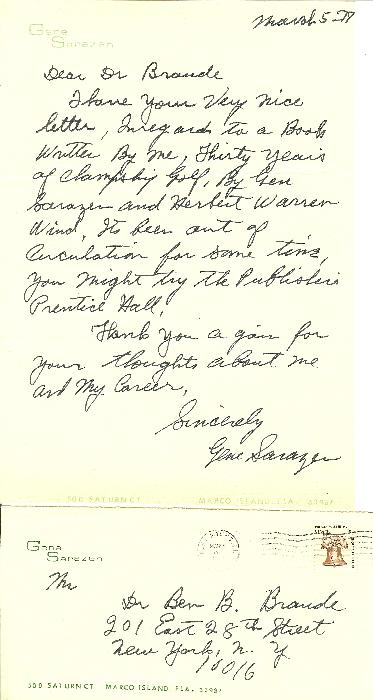 Gene
Sarazen
March 5-77
Dear Dr Braude
I have your Very nice
letter, Inregards to a Book
Written By me, Thirty Years
of Champship Golf, By Gene
Sarazen and Herbert Warren
Wind, Its been out of
Circulation for some time,
you might try the Publishers
Prentice Hall,
Thank you again for
your thoughts about me
and My Career,
Sincerely
Gene Sarazen
500 SATURN CT. MARCO ISLAND FLA. 33937
Gene
Sarazen
Mr
Dr Ben B. Braude
201 East 28th Street
New York, N. Y
10016
500 SATURN CT. MARCO ISLAND, FLA. 33937